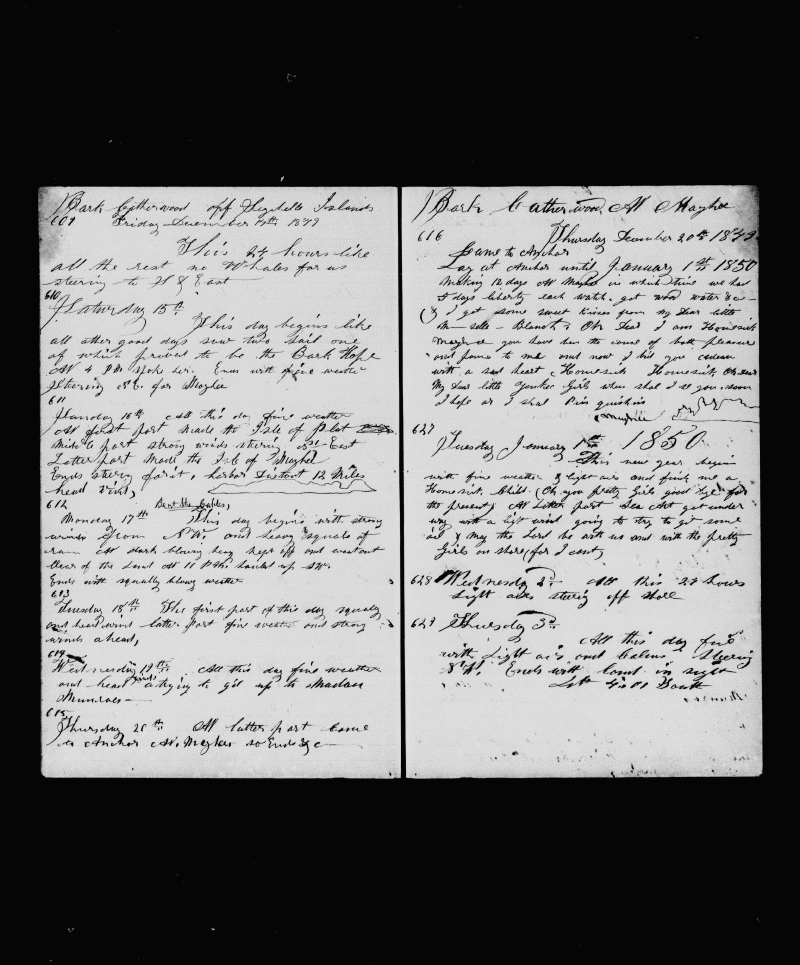 Bark Catherwood off Islands
609 Friday December 14th 1849
This 24 hours like
all the rest no Whales for us
steering to S & East
610
Saturday 15th
This day begins like
all other good days saw two sail one
of which proved to be the Bark Hope
At 4 PM spoke her. Ends with fine weather
Steering SE. for Maghee
611
Sunday 16th All this day fine weather
At first part made the Isle of Plat
Middle part strong winds stering East
Latter part Made the Isle of Maghee
Ends stering for it, harbor Distant 12 Miles
head wind,
612 Bent the Cables,
Monday 17th This day begins with strong
winds from NW. and heavy Squals of
rain At dark blowing heavy kept off and went out
Clear of the Land At 11 PM hauled up SW.
Ends with squally blowy weather
613
Tuesday 18th The first part of this day squally
and head wind latter part fine weather and strong
winds ahead,
614
Wednesday 19th All this day fine weather
and head winds a trying to git up to Madam

615
Thursday 20th At latter part Came
to Anchor At Maghee so Ends &c
Bark Catherwood At Maghee
616 Thursday December 20th 1849
Came to Anchor
Lay at Anchor until January 1st 1850
Making 12 days At Maghee in which time we had
5 days liberty each watch. got wood water &c
I got some sweet Kisses from my Dear little
Oh Dear I am Homesick
Maghee you have ben the cause of both pleasure
and to me and now I bid you
with a sad heart Homesick Homesick Oh dear
My Dear little Yankee Girls when shal I see you. soon
I hope or I shal
Maghee
627
Tuesday January 1st 1850
This new year begin
with fine weather & light airs and finds me a
Homesick Child. (Oh you pretty Girls good bye for
the present) At Latter part Got under
way with a light wind going to try to get some
oil & May the Lord be with us and with the pretty
Girls on shore (for I cant)
628 Wednesday 2d All this 24 hours
Light airs stering off shore
629 Thursday 3d
All this day fine
with Light airs and Calms Steering
SW. Ends with Land in sight
Latt 4:01 South